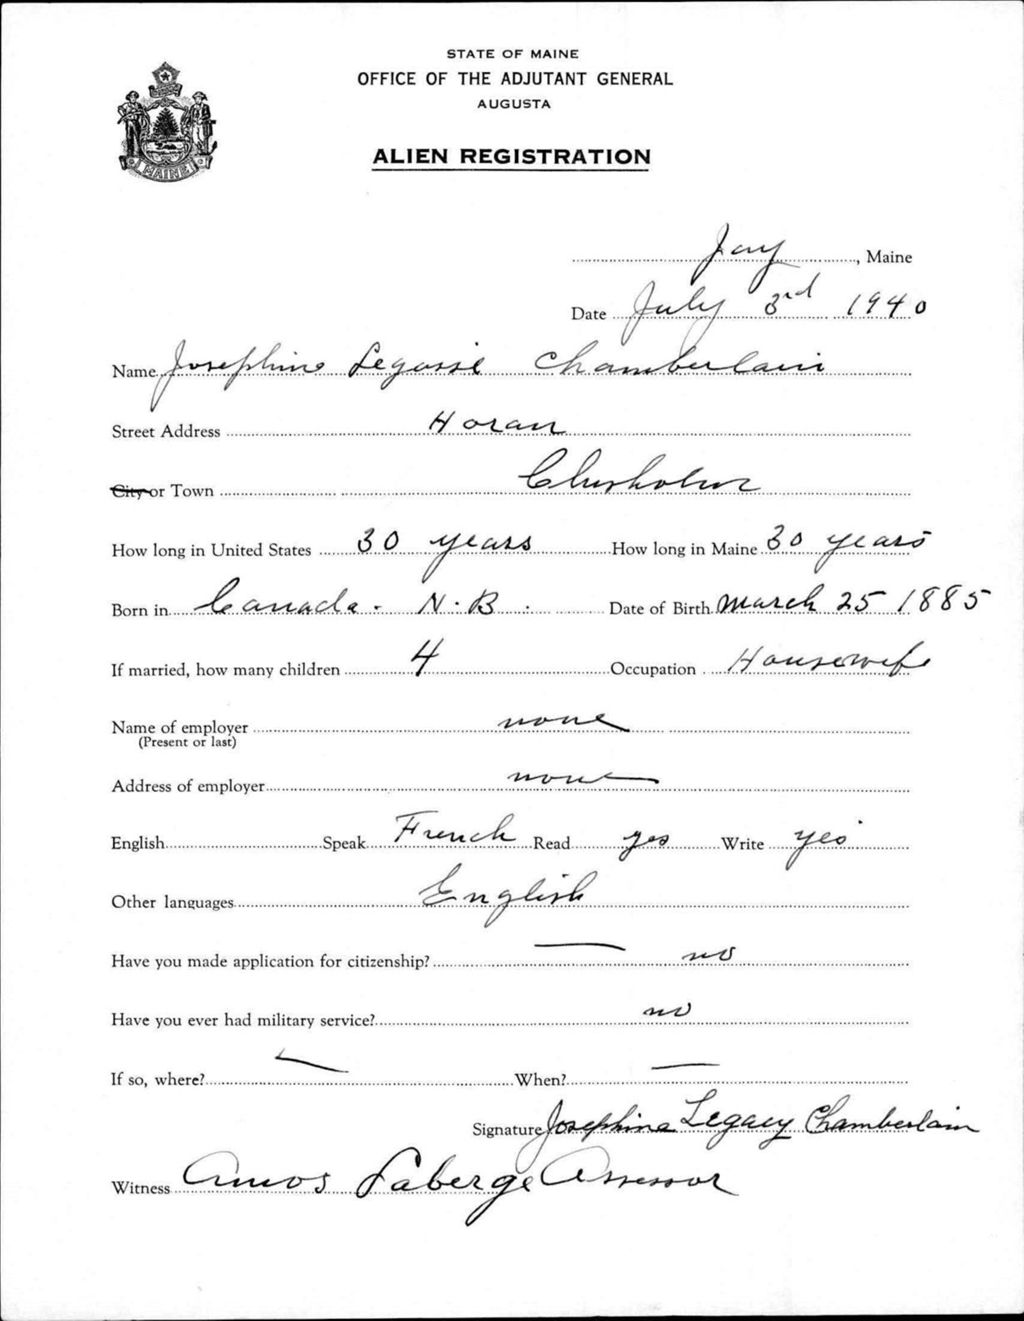 STATE OF MAINE
OFFICE OF THE ADJUTANT GENERAL
AUGUSTA
MAINE
ALIEN REGISTRATION
Jay, Maine
Date July 3rd 1940
Name Josephine Legassé Chamberlain
Street Address Horan
City or Town Chisholm
How long in United States 30 years How long in Maine 30 years
Born in Canada - N.B. Date of Birth March 25 1885
If married, how many children 4 Occupation Housewife
Name of employer none
(Present or last)
Address of employer none
English Speak French Read yes Write yes
Other languages English
Have you made application for citizenship? — no
Have you ever had military service? no
If so, where? — When? —
Signature Josephine Legacy Chamberlain
Witness Amos Laberge Assessor